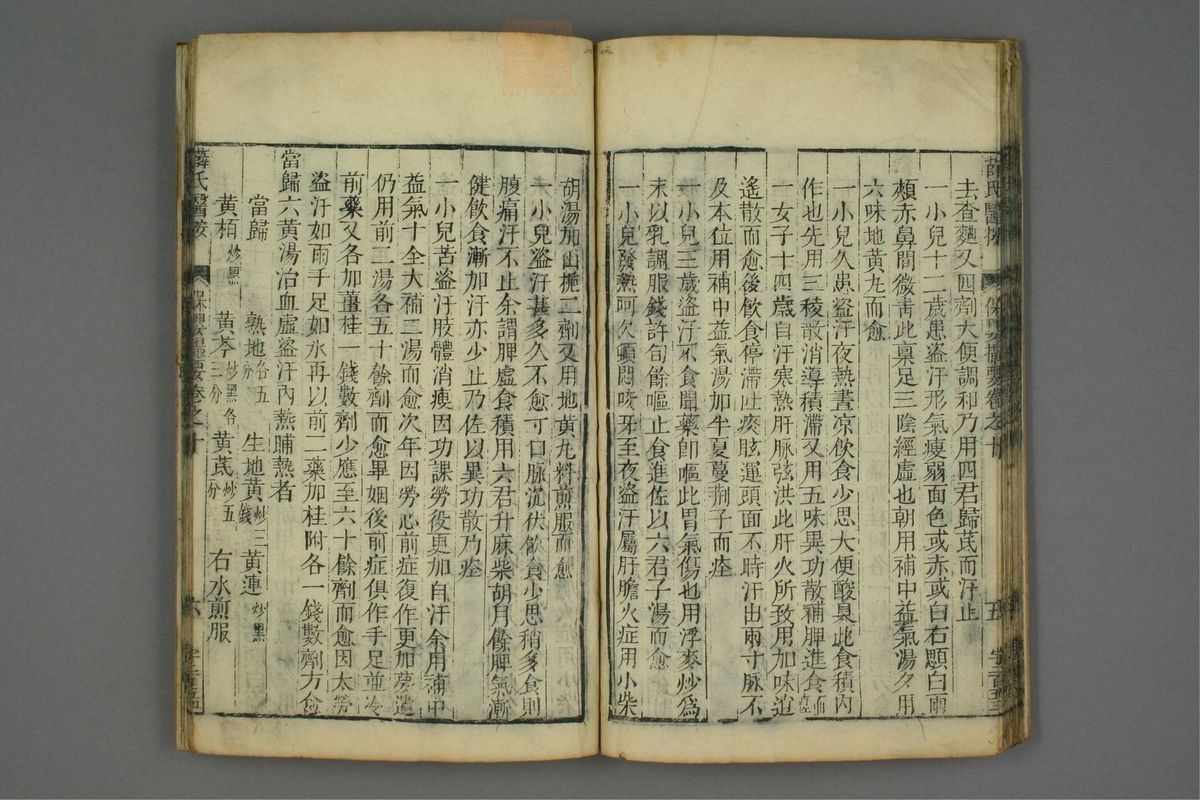 圭查麯又四劑大便調和乃用四君歸茋而汗止
一小兒十二歲患盜汗形氣瘦弱面色或赤或白右顋白兩
頰赤鼻間微青此稟足三陰經虛也朝用補中益氣湯夕用
六味地黃丸而愈
一小兒久患盜汗夜熱晝凉飲食少思大便酸臭此食積內
作也先用三稜散消導積滯又用五味異功散補脾進食而痊
一女子十四歲自汗寒熱肝脉弦洪此肝火所致用加味逍
遙散而愈後飲食停滯吐痰眩運頭面不時汗出兩寸脉不
及本位用補中益氣湯加半夏蔓荆子而痊
一小兒三歲盜汗不食聞藥卽嘔此胃氣傷也用浮麥炒爲
末以乳調服錢許旬餘嘔止食進佐以六君子湯而愈
一小兒發熱呵欠頓悶咬牙至夜盜汗屬肝膽火症用小柴
胡湯加山梔二劑又用地黃丸料煎服而愈
一小兒盜汗甚多久不愈寸口脉沉伏飲食少思稍多食則
腹痛汗不止余謂脾虛食積用六君升麻柴胡月餘脾氣漸
健飲食漸加汗亦少止乃佐以異功散乃痊
一小兒苦盜汗肢體消瘦因功課勞役更加自汗余用補中
益氣十全大補二湯而愈次年因勞心前症復作更加夢遺
仍用前二湯各五十餘劑而愈畢姻後前症俱作手足並冷
前藥又各加薑桂一錢數劑少應至六十餘劑而愈因太勞
盜汗如雨手足如氷再以前二藥加桂附各一錢數劑方愈
當歸六黃湯治血虛盜汗內熱晡熱者
當歸 熟地各五分 生地黃炒三錢 黃連炒黑
黃栢炒黑 黃芩炒黑各三分 黃茋炒五分 右水煎服
薛氏醫按 保嬰撮要卷之十 五
薛氏醫按 保嬰撮要卷之十 六